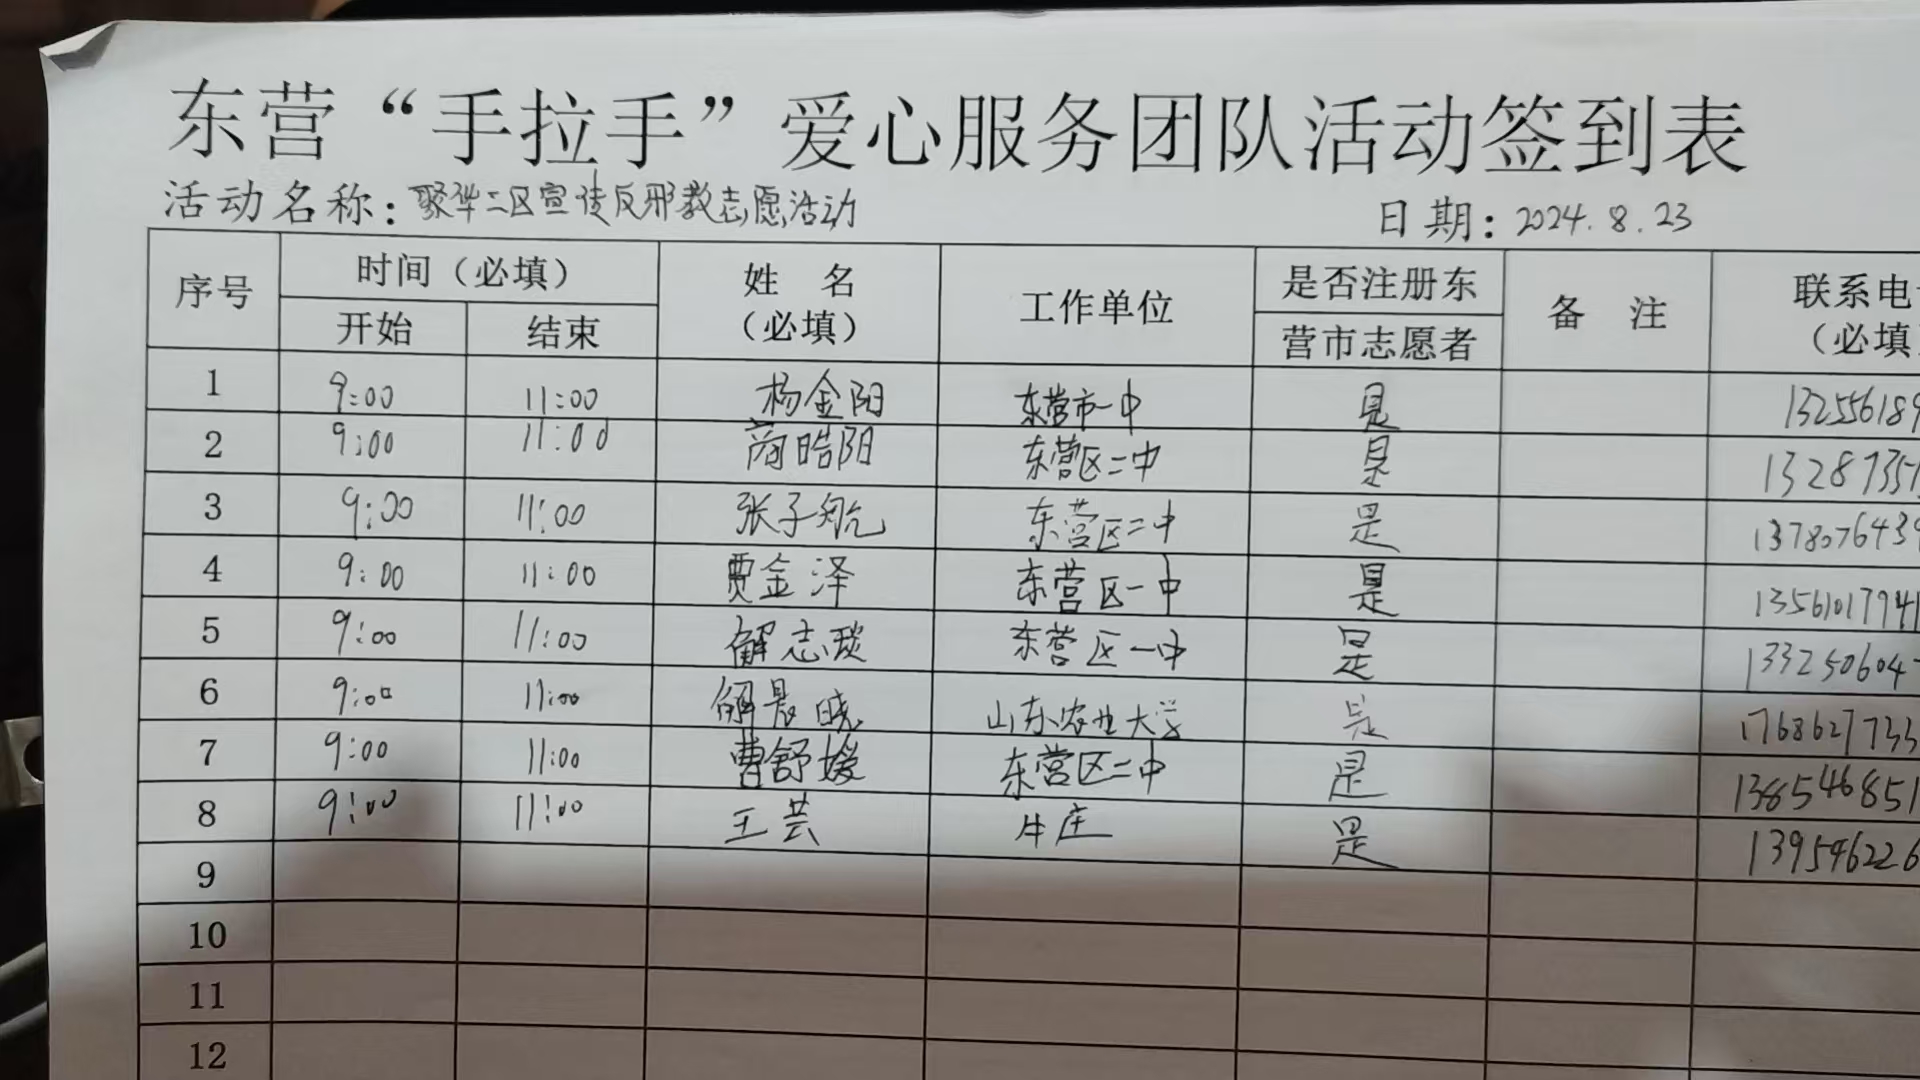 东营“手拉手”爱心服务团队活动签到表
活动名称：聚华二区宣传反邪教志愿活动 日期：2024.8.23
序号 时间（必填） 姓 名（必填） 工作单位 是否注册东营市志愿者 备 注 联系电 （必填
开始 结束
1 9:00 11:00 杨金阳 东营市一中 是 13255618
2 9:00 11:00 皓阳 东营区二中 是 1328735
3 9:00 11:00 张子航 东营区二中 是 137807643
4 9:00 11:00 贾金泽 东营区一中 是 1356101794
5 9:00 11:00 解志琰 东营区一中 是 133250604
6 9:00 11:00 解晨晓 山东农业大学 是 1768627733
7 9:00 11:00 曹舒媛 东营区二中 是 138546851
8 9:00 11:00 王芸 牛庄 是 139546226
9
10
11
12